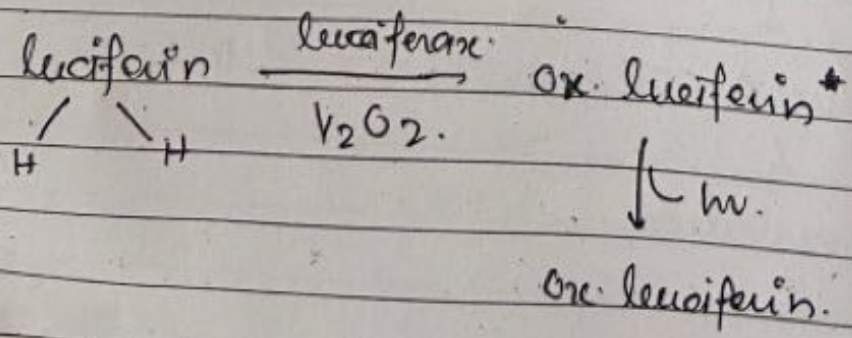 luciferin luciferase. ox. luciferin*
H H
V2O2.
hv.
ox. luciferin.